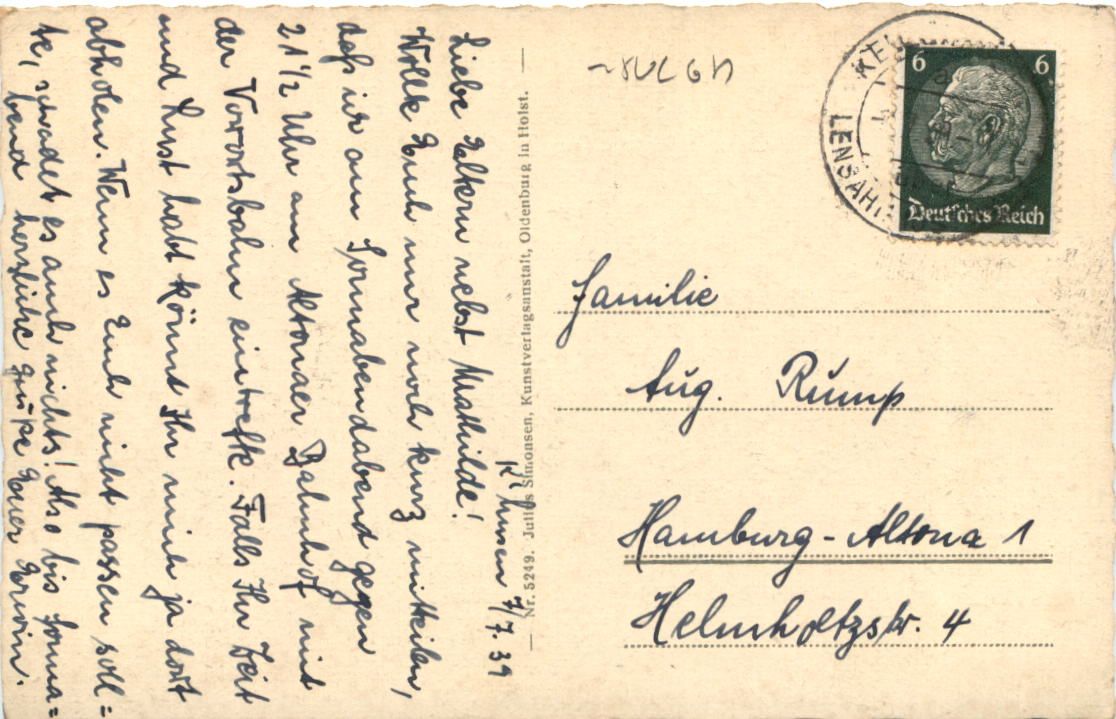 K' husen 7/7. 39
Liebe Eltern nebst Mathilde!
Wollte Euch nur noch kurz mitteilen,
daß ich am Sonnabendabend gegen
21 1/2 Uhr am Altonaer Bahnhof mit
der Vorortsbahn eintreffe. Falls Ihr Zeit
und Lust habt könnt Ihr mich ja dort
abholen. Wenn es Euch nicht passen soll=
te, schadet es auch nichts! Also bis Sonna=
bend herzliche Grüße Euer Erwin.
— Nr. 5249. Julius Simonsen, Kunstverlagsanstalt, Oldenburg in Holst. —
LENSAHN
6 6
Deutsches Reich
Familie
Aug. Rump
Hamburg-Altona 1
Helmholtzstr. 4